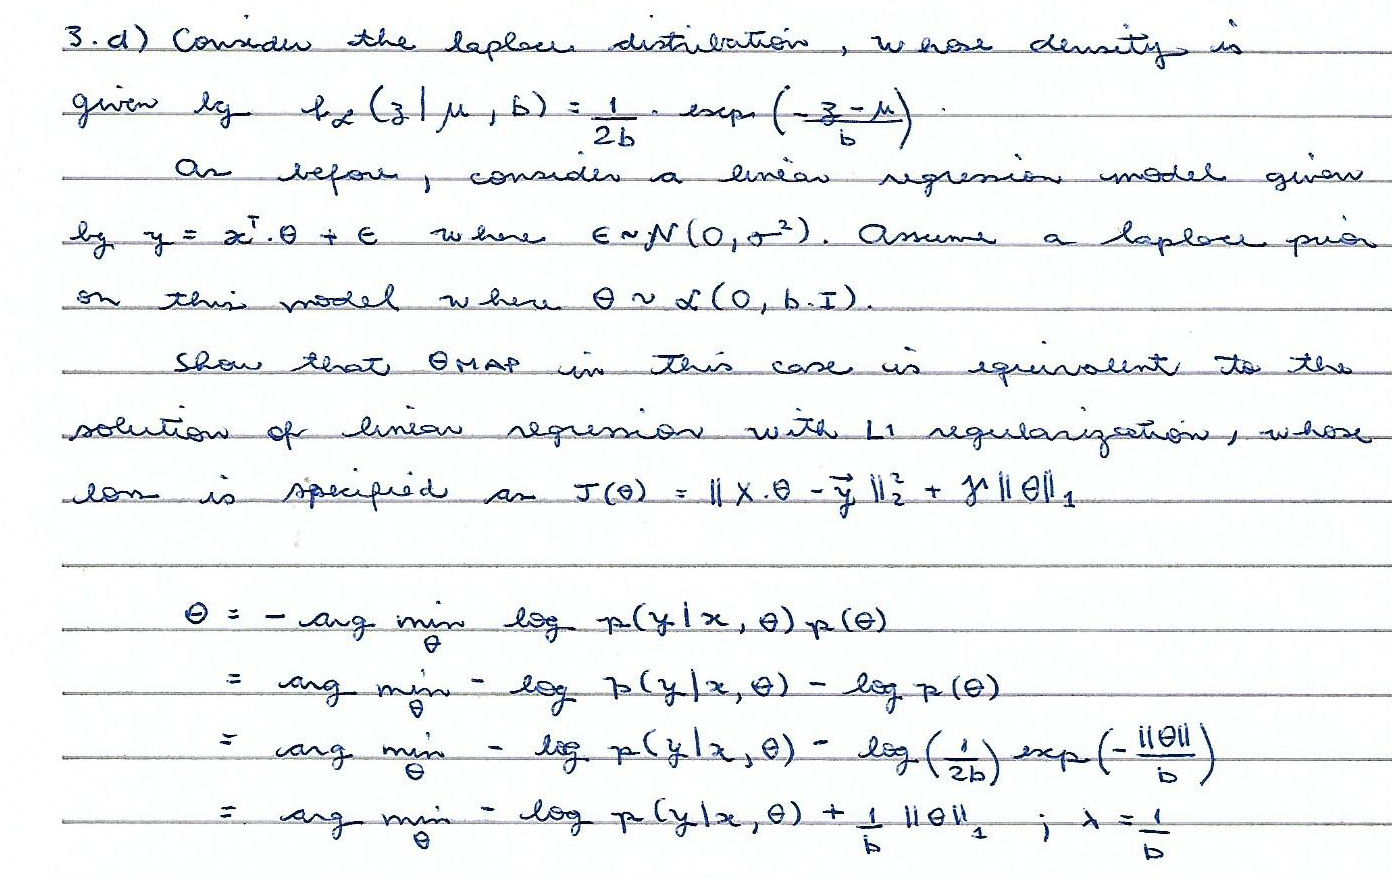 3.d) Consider the laplace distribution, whose density is
given by f_L(z|μ, b) = 1/2b · exp(-z-μ/b).
As before, consider a linear regression model given
by y = x^T·θ + ε where ε~N(0,σ²). Assume a laplace prior
on this model where θ ~ L(0, b·I).
Show that θMAP in this case is equivalent to the
solution of linear regression with L1 regularization, whose
loss is specified as J(θ) = ||X·θ - y⃗||₂² + γ||θ||₁
θ = - arg min_θ log p(y|x, θ)p(θ)
= arg min_θ - log p(y|x, θ) - log p(θ)
= arg min_θ - log p(y|x, θ) - log(1/2b) exp(-||θ||/b)
= arg min_θ - log p(y|x, θ) + 1/b ||θ||₁ ; λ = 1/b